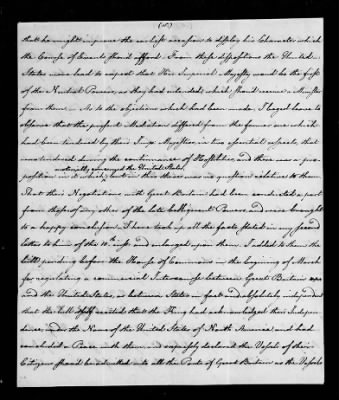 that he might improve the earliest occasion to display his Character which
the Course of Events should afford. From these dispositions the United
States were lead to expect that Her Imperial Majesty would be the first
of the Neutral Powers, as they had intended, which should receive a Minister
from them. As to the objections which had been made, I begged leave to
observe that the present Mediation differed from the former one which
had been tendered by their Imp. Majesties in two essential respects, that
was tendered during the continuance of Hostilities, and there was a pro-
materially concerned the United States,
position in it which but in this there was no question relative to them
That their Negotiation with Great Britain had been conducted a part
from those of any other of the late belligerent Powers and were brought
to a happy conclusion. I here took up all the facts stated in my second
letter to him of this 10th. and enlarged upon them. I added to them the
bill pending before the House of Commons in the begining of March
for regulating a commercial Intercourse between Great Britain
and the United States, as between States in fact and absolutely independent
that the bill itself recited that the King had acknowledged their Indepen-
dence, under the Name of the United States of North America and had
concluded a Peace with them and expressly declared the Vessels of their
Citizens should be admitted into all the Ports of Great Britain as the Vessels